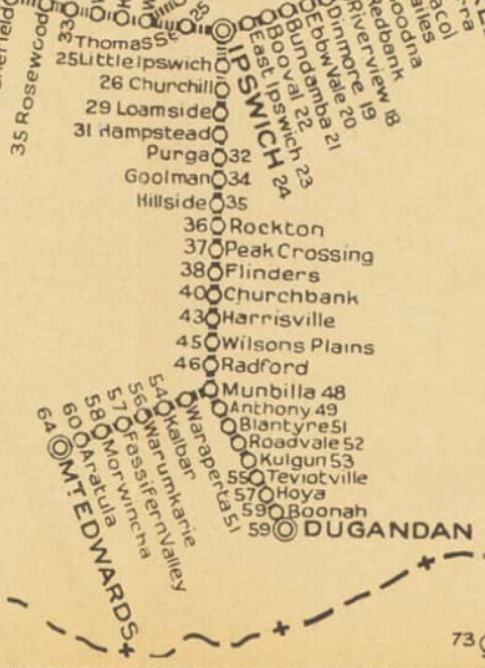 25
33
Thomas St
35 Rosewood
IPSWICH 24
East Ipswich 23
Booval 22
Bundamba 21
EbbwVale 20
Dinmore 19
Riverview 18
Redbank
Goodna
25 Little Ipswich
26 Churchill
29 Loamside
31 Hampstead
Purga 32
Goolman 34
Hillside 35
36 Rockton
37 Peak Crossing
38 Flinders
40 Churchbank
43 Harrisville
45 Wilsons Plains
46 Radford
Munbilla 48
Anthony 49
Blantyre 51
Roadvale 52
Kulgun 53
55 Teviotville
57 Hoya
59 Boonah
59 DUGANDAN
Waraperta 51
54 Kalbar
56 Warumkarie
57 Fassifern Valley
58 Morwincha
60 Aratula
64 MT EDWARDS
73